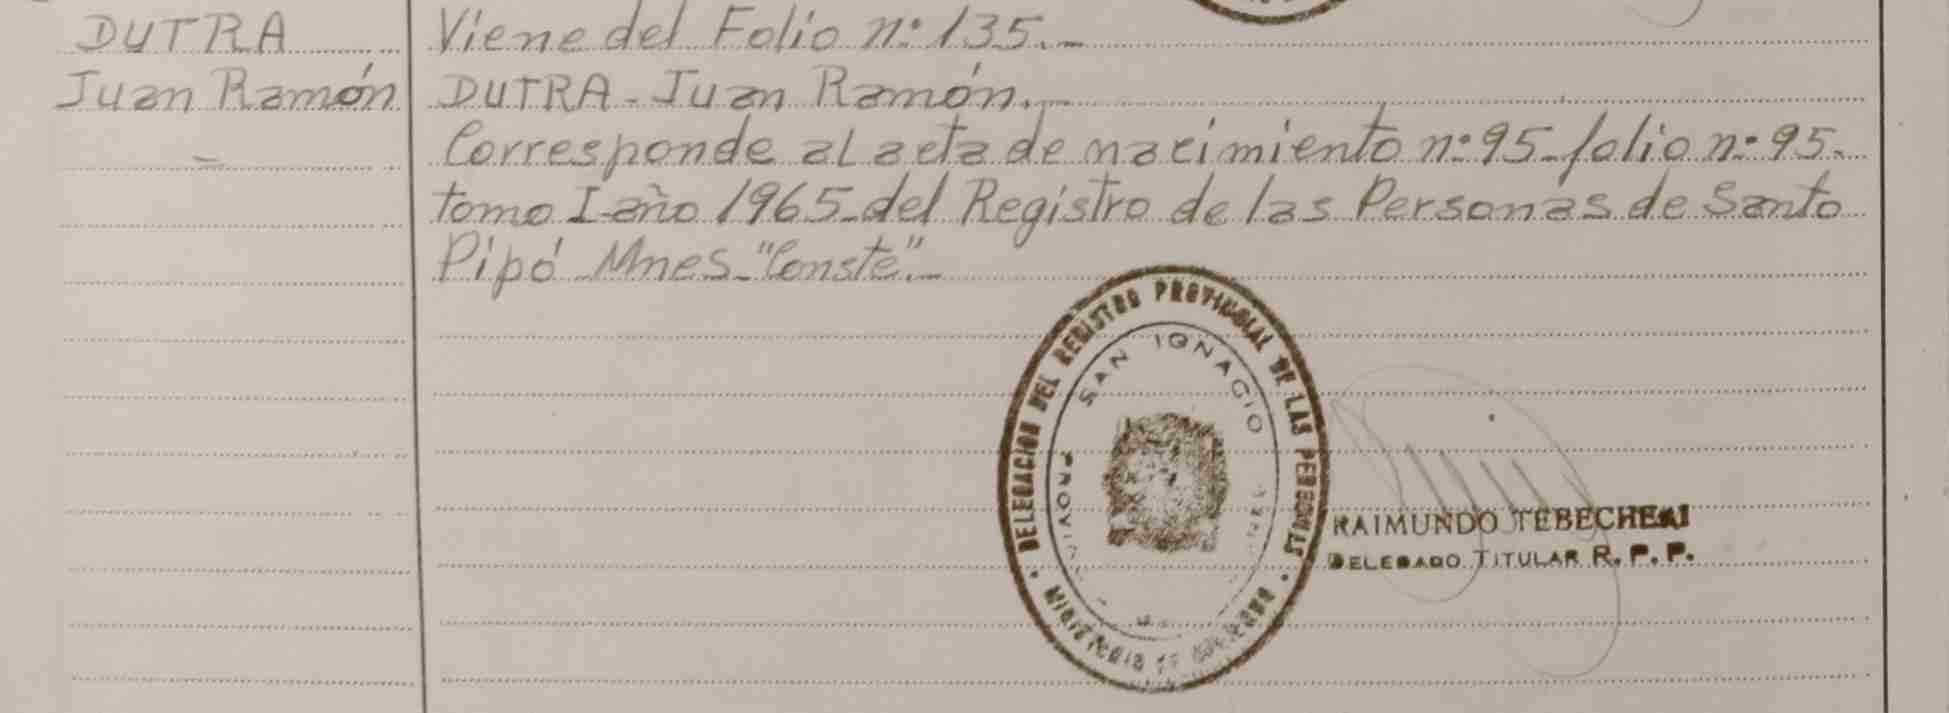 DUTRA
Juan Ramón
-
Viene del Folio n° 135.-
DUTRA - Juan Ramón.-
Corresponde al acta de nacimiento n° 95 - folio n° 95.
tomo I - año 1965 - del Registro de las Personas de Santo
Pipó - Mnes - "Conste".-
DELEGACION DEL REGISTRO PROVINCIAL DE LAS PERSONAS
SAN IGNACIO
MINISTERIO DE GOBIERNO
RAIMUNDO TEBECHERI
DELEGADO TITULAR R. P. P.